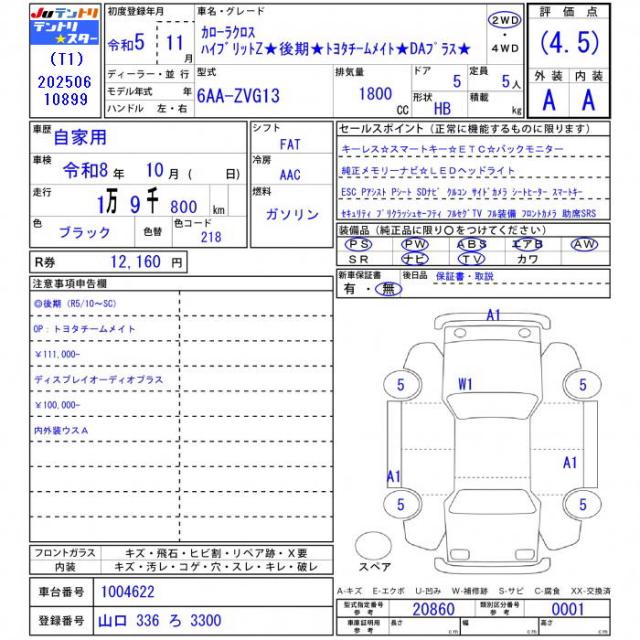 JUテントリ
テントリ
★スター
(T1)
202506
10899
初度登録年月
令和5 11月
ディーラー・並行
モデル年式 年
ハンドル 左・右
車名・グレード
カローラクロス
ハイブリットZ★後期★トヨタチームメイト★DAプラス★
2WD
・
4WD
型式
6AA-ZVG13
排気量
1800 CC
ドア 5
定員 5人
形状 HB
積載 kg
評価点
(4.5)
外装 内装
A A
車歴 自家用
車検 令和8年 10月 ( 日)
走行 1万 9千 800 km
色 ブラック 色替 色コード 218
シフト
FAT
冷房
AAC
燃料
ガソリン
R券 12,160 円
セールスポイント (正常に機能するものに限ります)
キーレス☆スマートキー☆ETC☆バックモニター
純正メモリーナビ☆LEDヘッドライト
ESC Pアシスト Pシート SDナビ クルコン サイドカメラ シートヒーター スマートキー
セキュリティ プリクラッシュセーフティ フルセグTV フル装備 フロントカメラ 助席SRS
装備品 (純正品に限り○をつけてください)
PS PW ABS エアB AW
SR ナビ TV カワ
新車保証書
有・無
後日品 保証書・取説
注意事項申告欄
◎後期(R5/10~SC)
OP:トヨタチームメイト
¥111,000-
ディスプレイオーディオプラス
¥100,000-
内外装ウスA
A1
5 W1 5
A1 A1
5 5
スペア
フロントガラス キズ・飛石・ヒビ割・リペア跡・X要
内装 キズ・汚レ・コゲ・穴・スレ・キレ・破レ
A-キズ E-エクボ U-凹み W-補修跡 S-サビ C-腐食 XX-交換済
車台番号 1004622
登録番号 山口 336 ろ 3300
型式指定番号 参考 20860 類別区分番号 参考 0001
車庫証明用 参考 長さ cm 幅 cm 高さ cm